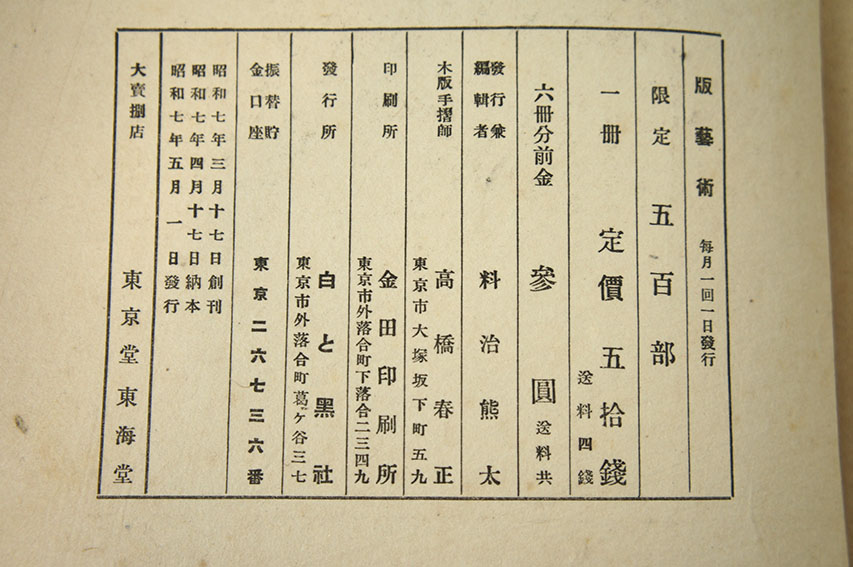 版藝術 每月一回一日發行
限定 五百部
一冊 定價五拾錢
送料四錢
六冊分前金 參圓 送料共
發行兼
編輯者 料治熊太
木版手摺師 高橋春正
東京市大塚坂下町五九
印刷所 金田印刷所
東京市外落合町下落合二三四九
發行所 白と黑社
東京市外落合町葛ヶ谷三七
振替貯
金口座 東京二六七三六番
昭和七年三月十七日創刊
昭和七年四月十七日納本
昭和七年五月一日發行
大賣捌店 東京堂 東海堂